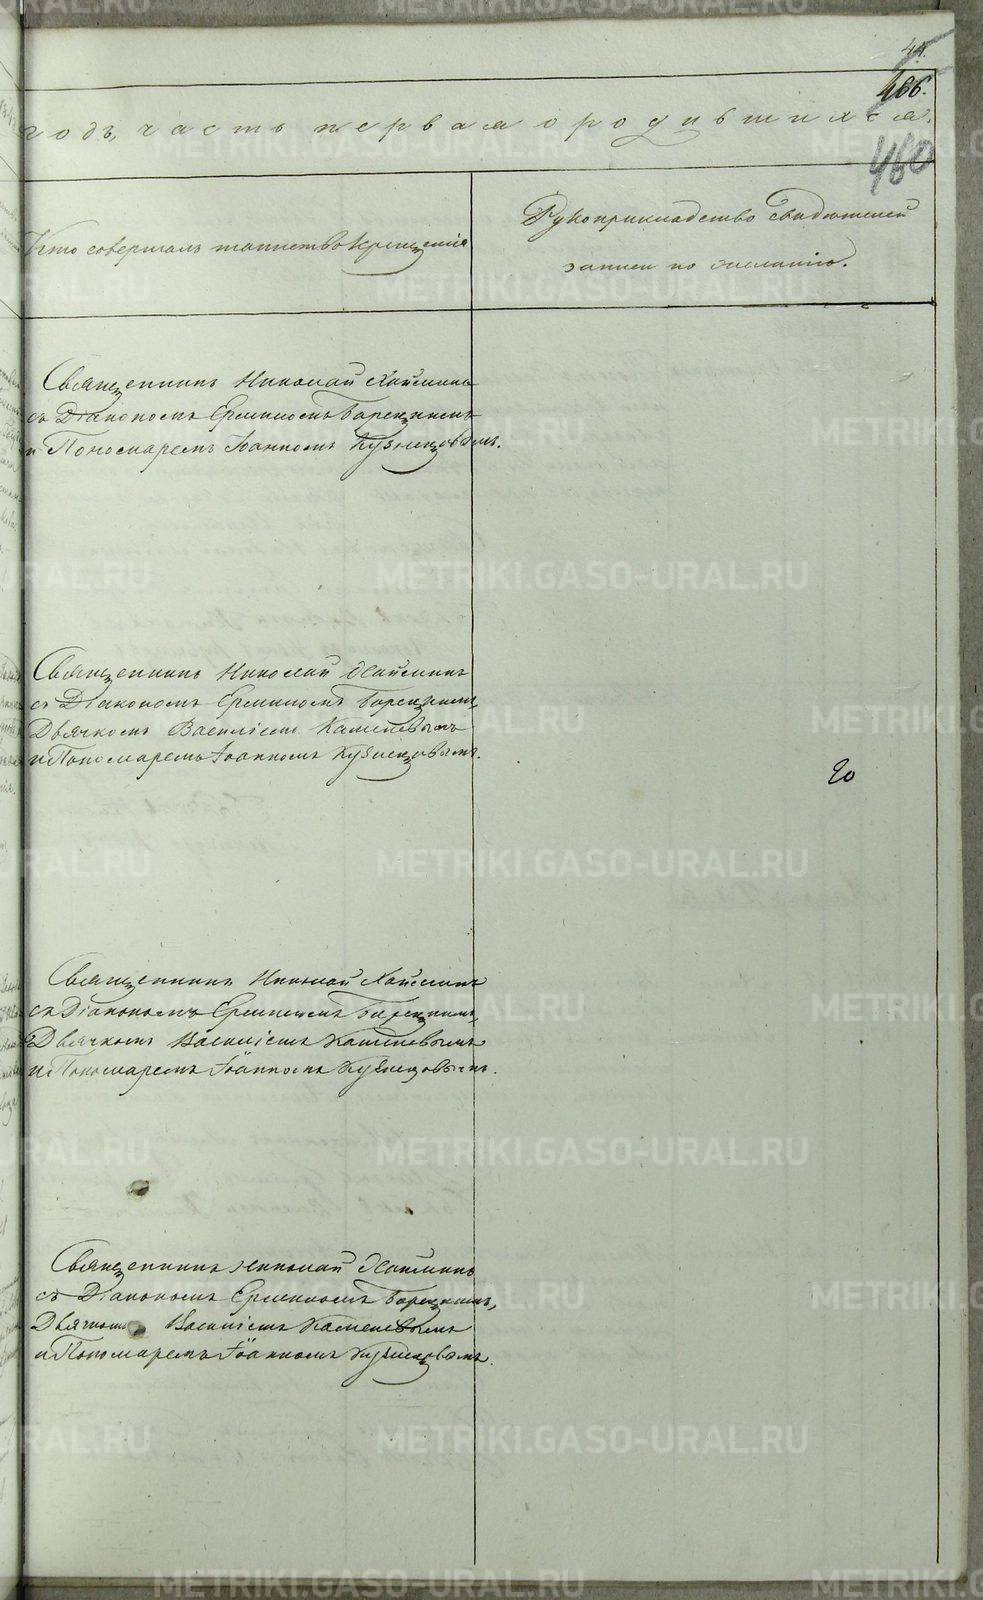 44.
466.
годъ, часть первая о родившихся.
460
Кто совершалъ таинство крещенія
Рукоприкладство свидѣтелей
записи по желанію.
Священникъ Николай Хайминъ
съ Діакономъ Ермиломъ Борецкимъ
и Пономаремъ Іоанномъ Кузнецовымъ.
Священникъ Николай Хайминъ
съ Діакономъ Ермиломъ Борецкимъ,
Дьячкомъ Василіемъ Каменевымъ
и Пономаремъ Іоанномъ Кузнецовымъ.
20
Священникъ Николай Хайминъ
съ Діакономъ Ермиломъ Борецкимъ,
Дьячкомъ Василіемъ Каменевымъ
и Пономаремъ Іоанномъ Кузнецовымъ.
Священникъ Николай Хайминъ
съ Діакономъ Ермиломъ Борецкимъ,
Дьячкомъ Василіемъ Каменевымъ
и Пономаремъ Іоанномъ Кузнецовымъ.
METRIKI.GASO-URAL.RU